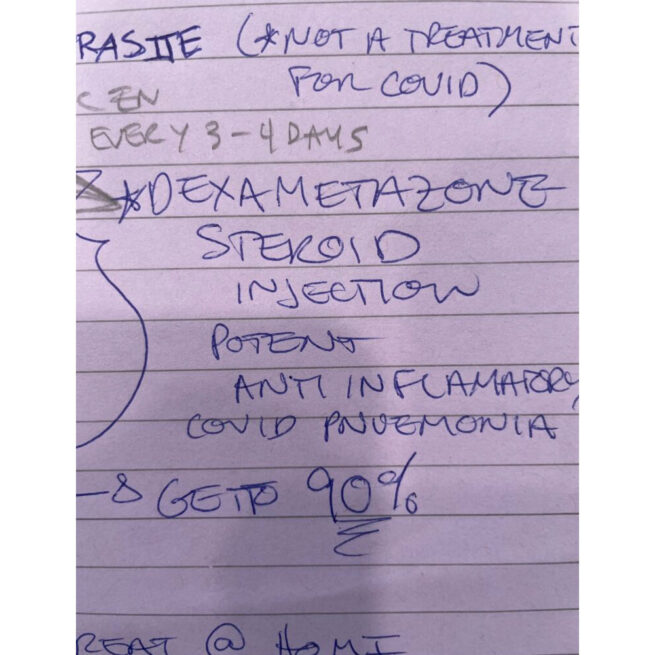 RASITE (*NOT A TREATMENT
FOR COVID)
C EN
EVERY 3-4 DAYS
*DEXAMETAZONE
STEROID
INJECTION
POTENT
ANTI INFLAMATORY
COVID PNUEMONIA
-8 GET TO 90%
REAT @ HOME